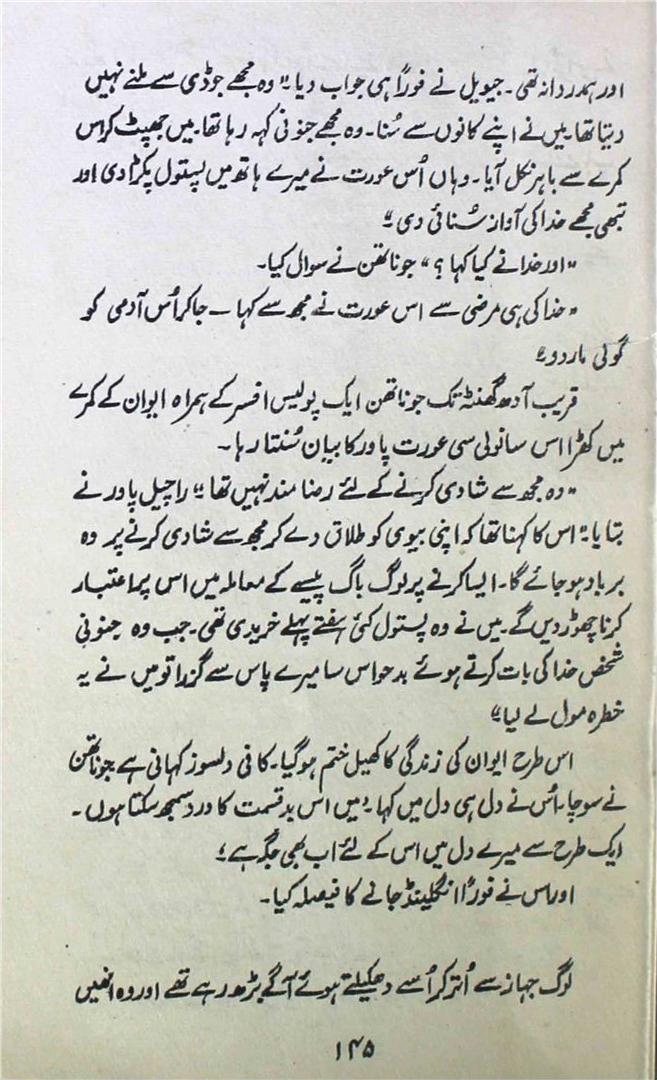 اور ہمدردانہ تھی۔ جیویل نے فوراً ہی جواب دیا۔ "وہ مجھے جوڈی سے ملنے نہیں
دیتا تھا۔ میں نے اپنے کانوں سے سُنا۔ وہ مجھے جنونی کہہ رہا تھا۔ میں جھپٹ کر اس
کمرے سے باہر نکل آیا۔ وہاں اُس عورت نے میرے ہاتھ میں پستول پکڑا دی اور
تبھی مجھے خدا کی آواز سُنائی دی۔"
"اور خدا نے کیا کہا؟" جوناتھن نے سوال کیا۔
"خدا کی ہی مرضی سے اس عورت نے مجھ سے کہا ـ جا کر اُس آدمی کو
گولی مار دو۔"
قریب آدھ گھنٹہ تک جوناتھن ایک پولیس افسر کے ہمراہ ایوان کے کمرے
میں کھڑا اس سانولی سی عورت پاور کا بیان سُنتا رہا۔
"وہ مجھ سے شادی کرنے کے لئے رضا مند نہیں تھا" راجیل پاور نے
بتایا۔ "اس کا کہنا تھا کہ اپنی بیوی کو طلاق دے کر مجھ سے شادی کرنے پر وہ
برباد ہو جائے گا۔ ایسا کرنے پر لوگ باگ پیسے کے معاملہ میں اس پر اعتبار
کرنا چھوڑ دیں گے۔ میں نے وہ پستول کئی ہفتے پہلے خریدی تھی۔ جب وہ جنونی
شخص خدا کی بات کرتے ہوئے بدحواس سا میرے پاس سے گزرا تو میں نے یہ
خطرہ مول لے لیا۔"
اس طرح ایوان کی زندگی کا کھیل ختم ہو گیا۔ کافی دلسوز کہانی ہے جوناتھن
نے سوچا۔ اُس نے دل ہی دل میں کہا۔ "میں اس بدقسمت کا درد سمجھ سکتا ہوں۔
ایک طرح سے میرے دل میں اس کے لئے اب بھی جگہ ہے۔"
اور اس نے فوراً انگلینڈ جانے کا فیصلہ کیا۔
لوگ جہاز سے اُتر کر اُسے دھکیلتے ہوئے آگے بڑھ رہے تھے اور وہ انھیں
۱۴۵